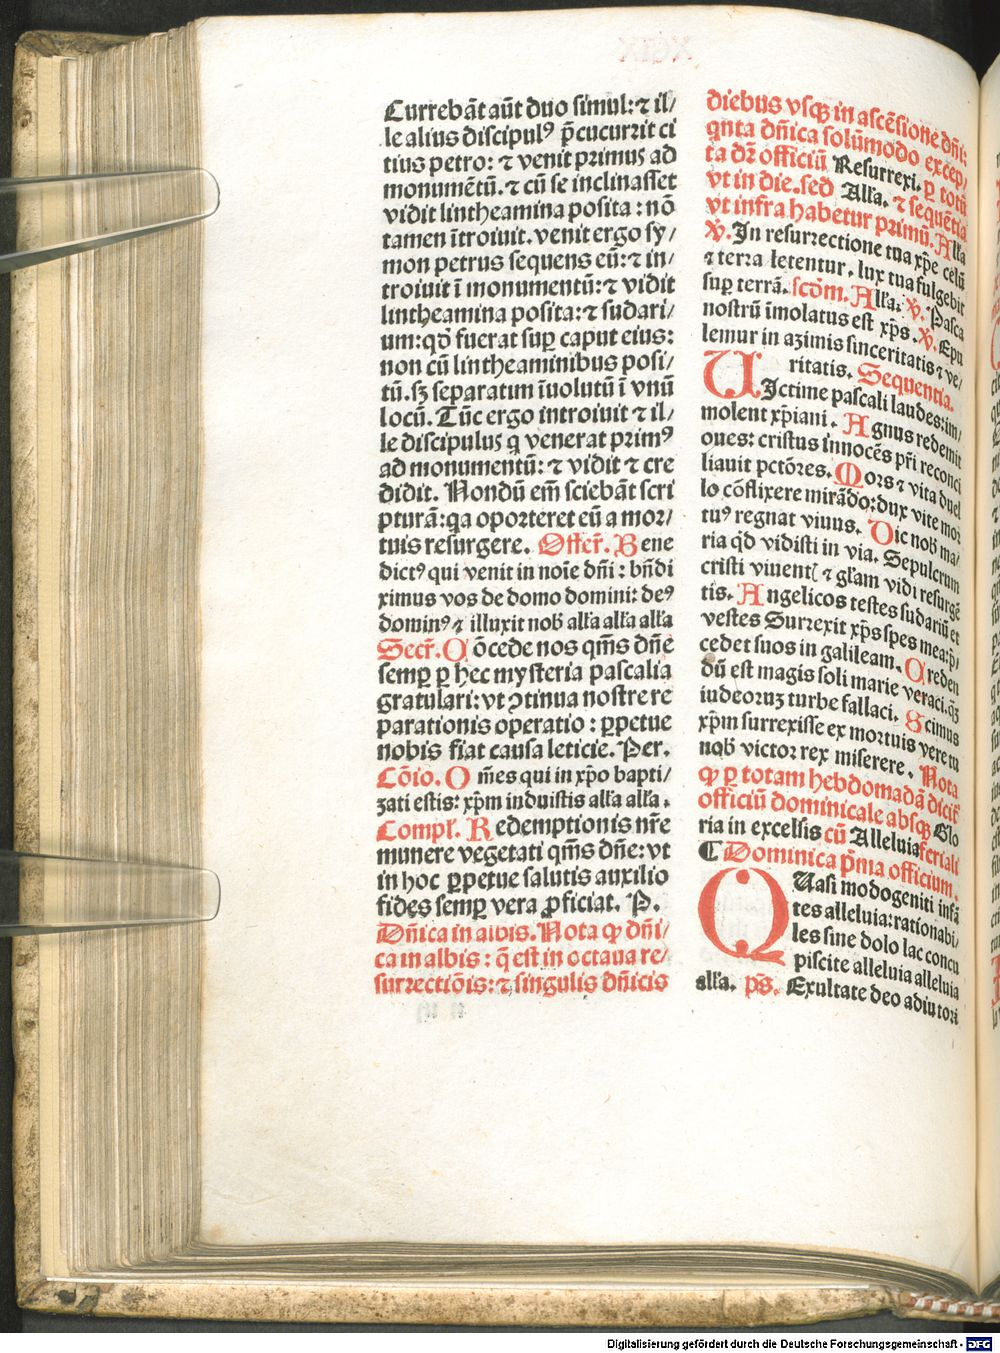 Currebāt aūt duo simul: ⁊ il/
le alius discipulꝰ p̄cucurrit ci
tius petro: ⁊ venit primus ad
monumētū. ⁊ cū se inclinasset
vidit lintheamina posita: nō
tamen ītroiuit. venit ergo sy/
mon petrus sequens eū: ⁊ in/
troiuit ī monumentū: ⁊ vidit
lintheamina posita: ⁊ sudari/
um: qd̄ fuerat suꝑ caput eius:
non cū lintheaminibus posi/
tū. sꝫ separatim īuolutū ī vnū
locū. Tūc ergo introiuit ⁊ il/
le discipulus q venerat primꝰ
ad monumentū: ⁊ vidit ⁊ cre
didit. Nondū em̄ sciebāt scri
pturā: qa oporteret eū a mor/
tuis resurgere. Offer̄. Bene
dictꝰ qui venit in noīe dn̄i: bn̄di
ximus vos de domo domini: deꝰ
dominꝰ ⁊ illuxit nob̄ all'a all'a all'a
Secr̄. Cōcede nos qm̄s dn̄e
semꝑ ꝑ hec mysteria pascalia
gratulari: vt ꝯtinua nostre re
parationis operatio: ꝑpetue
nobis fiat causa leticie. Per.
Cōio. Om̄es qui in xp̄o bapti/
zati estis: xp̄m induistis all'a all'a.
Compl'. Redemptionis nr̄e
munere vegetati qm̄s dn̄e: vt
in hoc ꝑpetue salutis auxilio
fides semꝑ vera ꝓficiat. P.
Dn̄ica in albis. Nota ꝙ dn̄i/
ca in albis: q̄ est in octaua re/
surrectiōis: ⁊ singulis dn̄icis
diebus vsqꝫ in ascēsione dn̄i:
qnta dn̄ica solūmodo excep/
ta dr̄ officiū Resurrexi. ꝑ totū
vt in die. sed All'a. ⁊ sequētia
vt infra habetur primū. All'a
℣. In resurrectione tua xp̄e celū
⁊ terra letentur. lux tua fulgebit
suꝑ terrā. scd̄m. All'a: ℣. Pasca
nostrū īmolatus est xp̄s. ℣. Epu
lemur in azimis sinceritatis ⁊ ve/
ritatis. Sequentia.
VIctime pascali laudes: im/
molent xp̄iani. Agnus redemit
oues: cristus innocēs pr̄i reconci
liauit pctōres. Mors ⁊ vita duel
lo cōflixere mirādo: dux vite mor
tuꝰ regnat viuus. Dic nob̄ ma/
ria qd̄ vidisti in via. Sepulcrum
cristi viuentꝭ ⁊ gl'am vidi resurgē
tis. Angelicos testes sudariū et
vestes Surrexit xp̄s spes mea: p̄/
cedet suos in galileam. Creden
dū est magis soli marie veraci. qꝫ
iudeoruꝫ turbe fallaci. Scimus
xp̄m surrexisse ex mortuis vere tu
nob̄ victor rex miserere. Nota
ꝙ ꝑ totam hebdomadā dicit̄
officiū dominicale absqꝫ Glo
ria in excelsis cū Alleluia feriali
Dominica p̄ma officium.
QUasi modogeniti infā
tes alleluia: rationabi/
les sine dolo lac concu
piscite alleluia alleluia
all'a. ps̄. Exultate deo adiutori
Digitalisierung gefördert durch die Deutsche Forschungsgemeinschaft - DFG